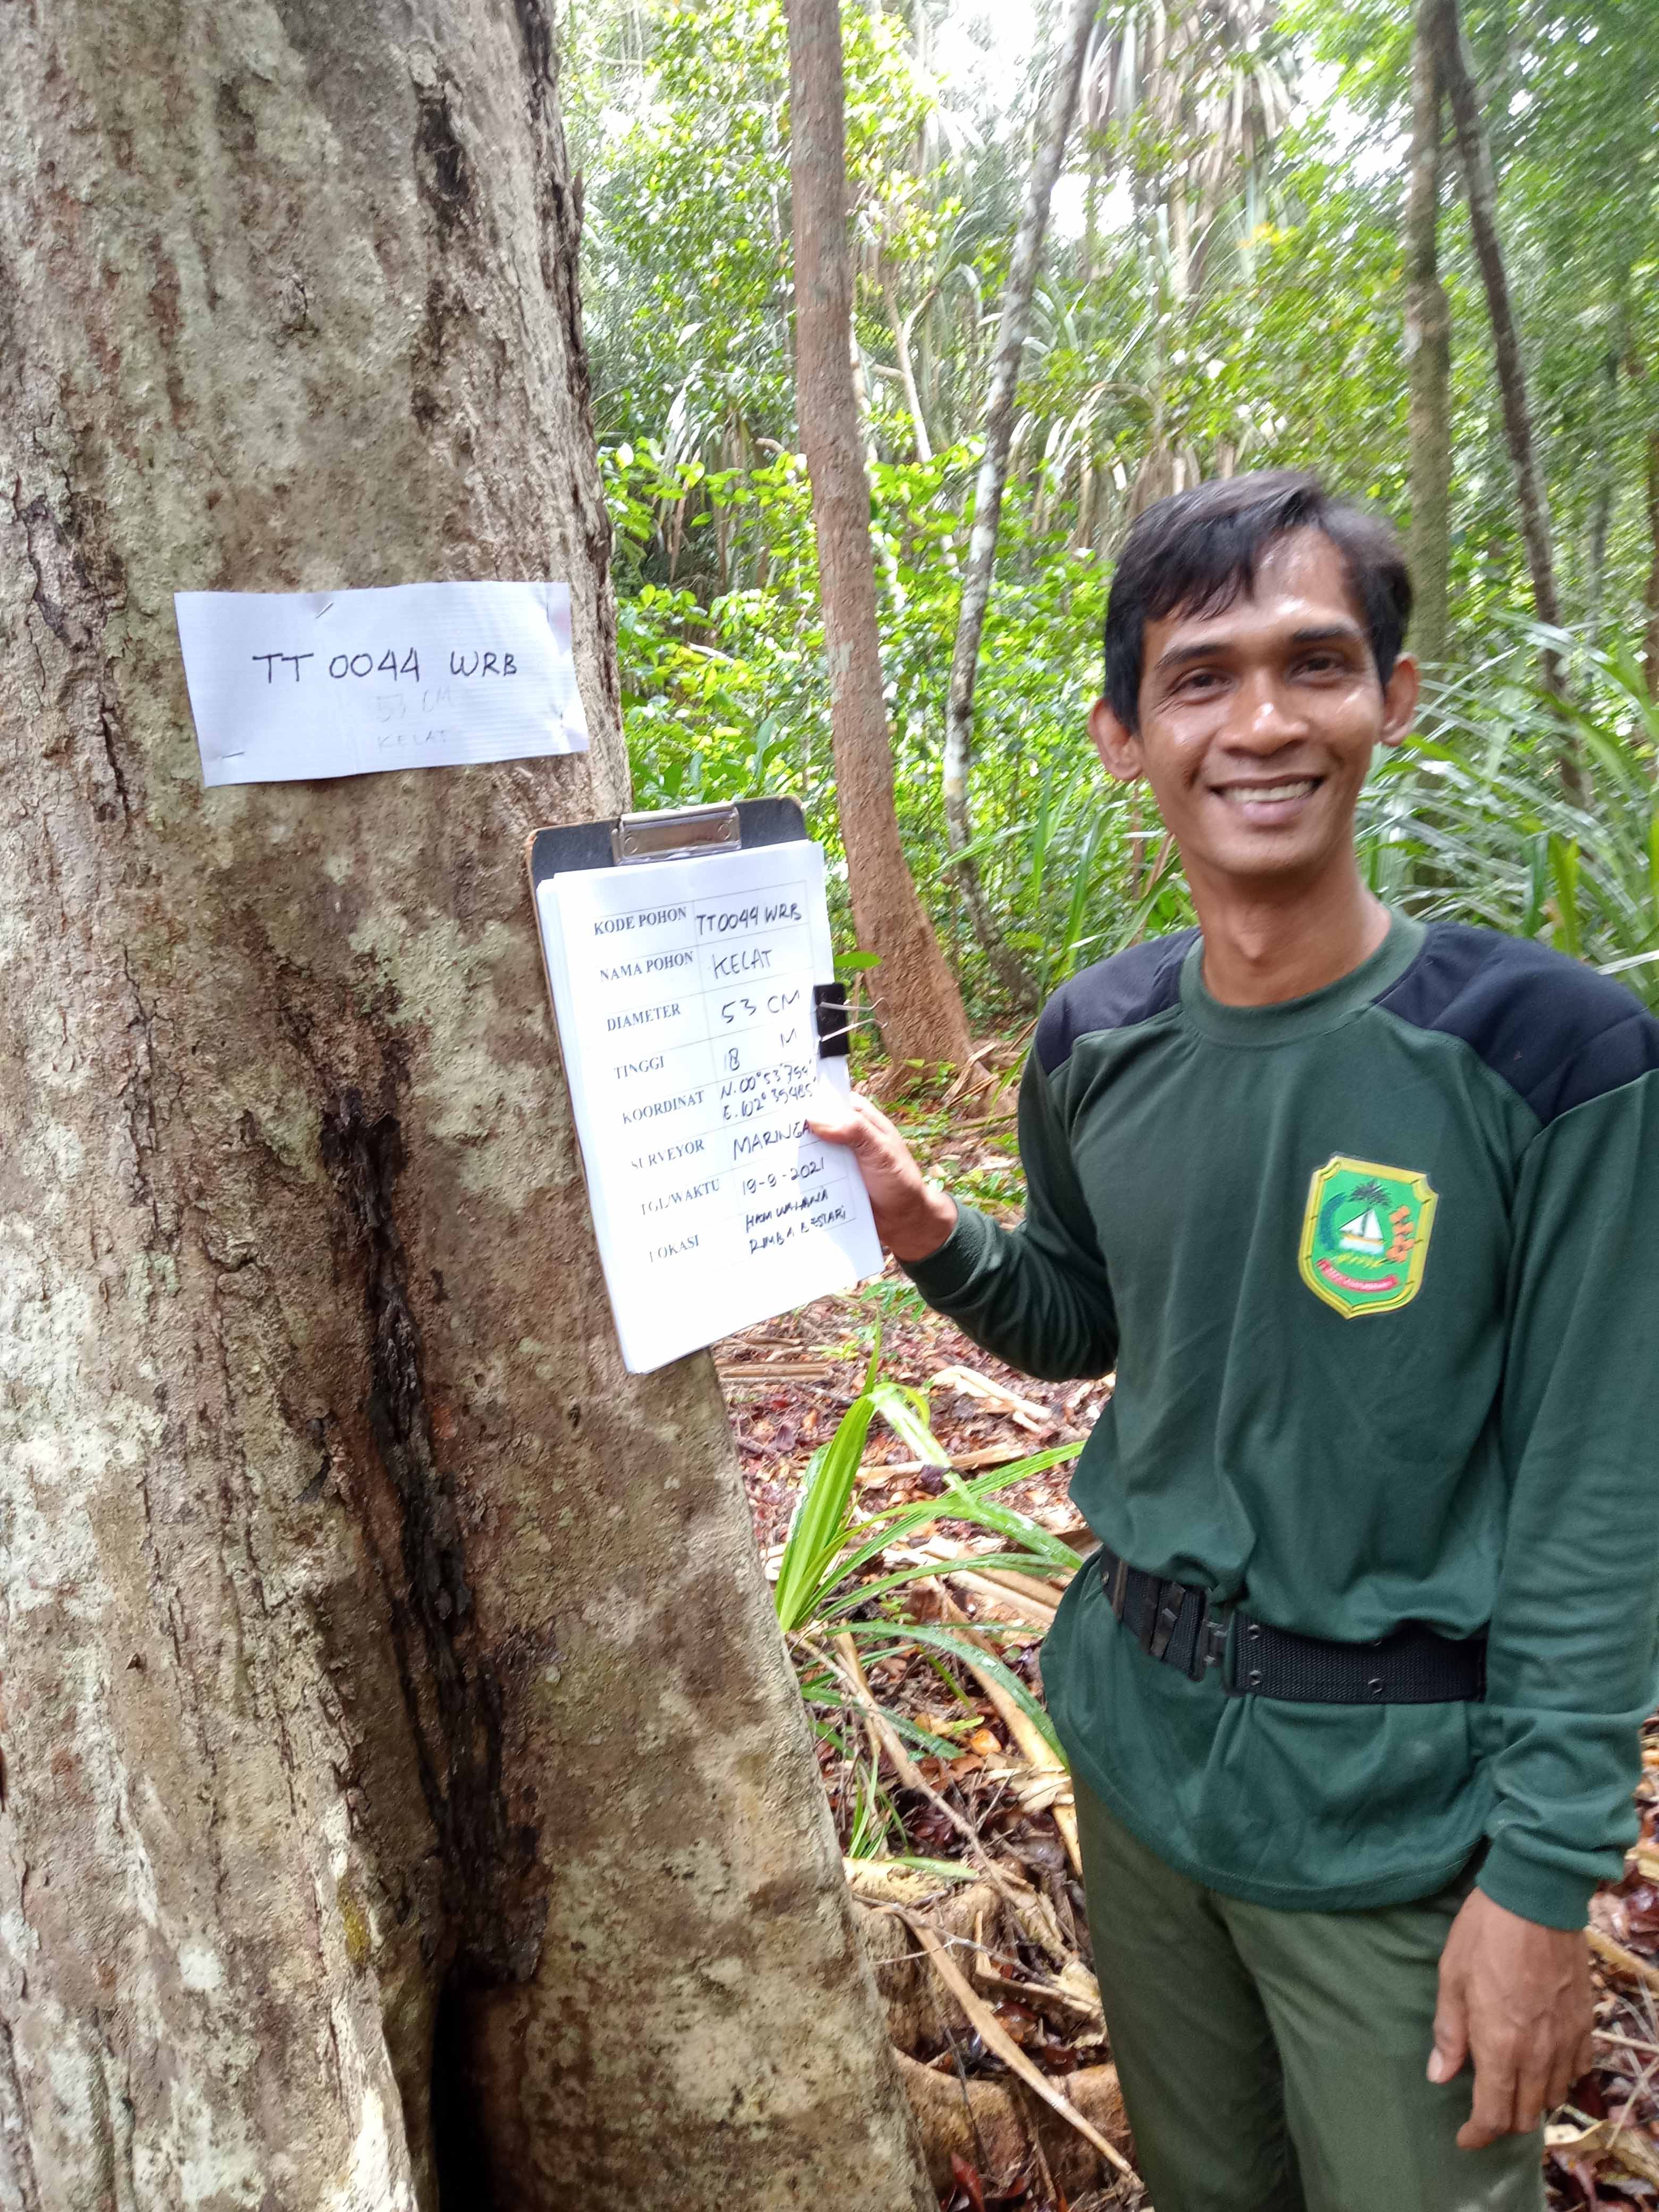 TT 0044 WRB
53 CM
KELAT
KODE POHON TT0044 WRB
NAMA POHON KELAT
DIAMETER 53 CM
TINGGI 18 M
KOORDINAT N. 00° 53' 
E. 102° 
SURVEYOR MARINGA
TGL/WAKTU 19-9-2021
LOKASI
RIMBA